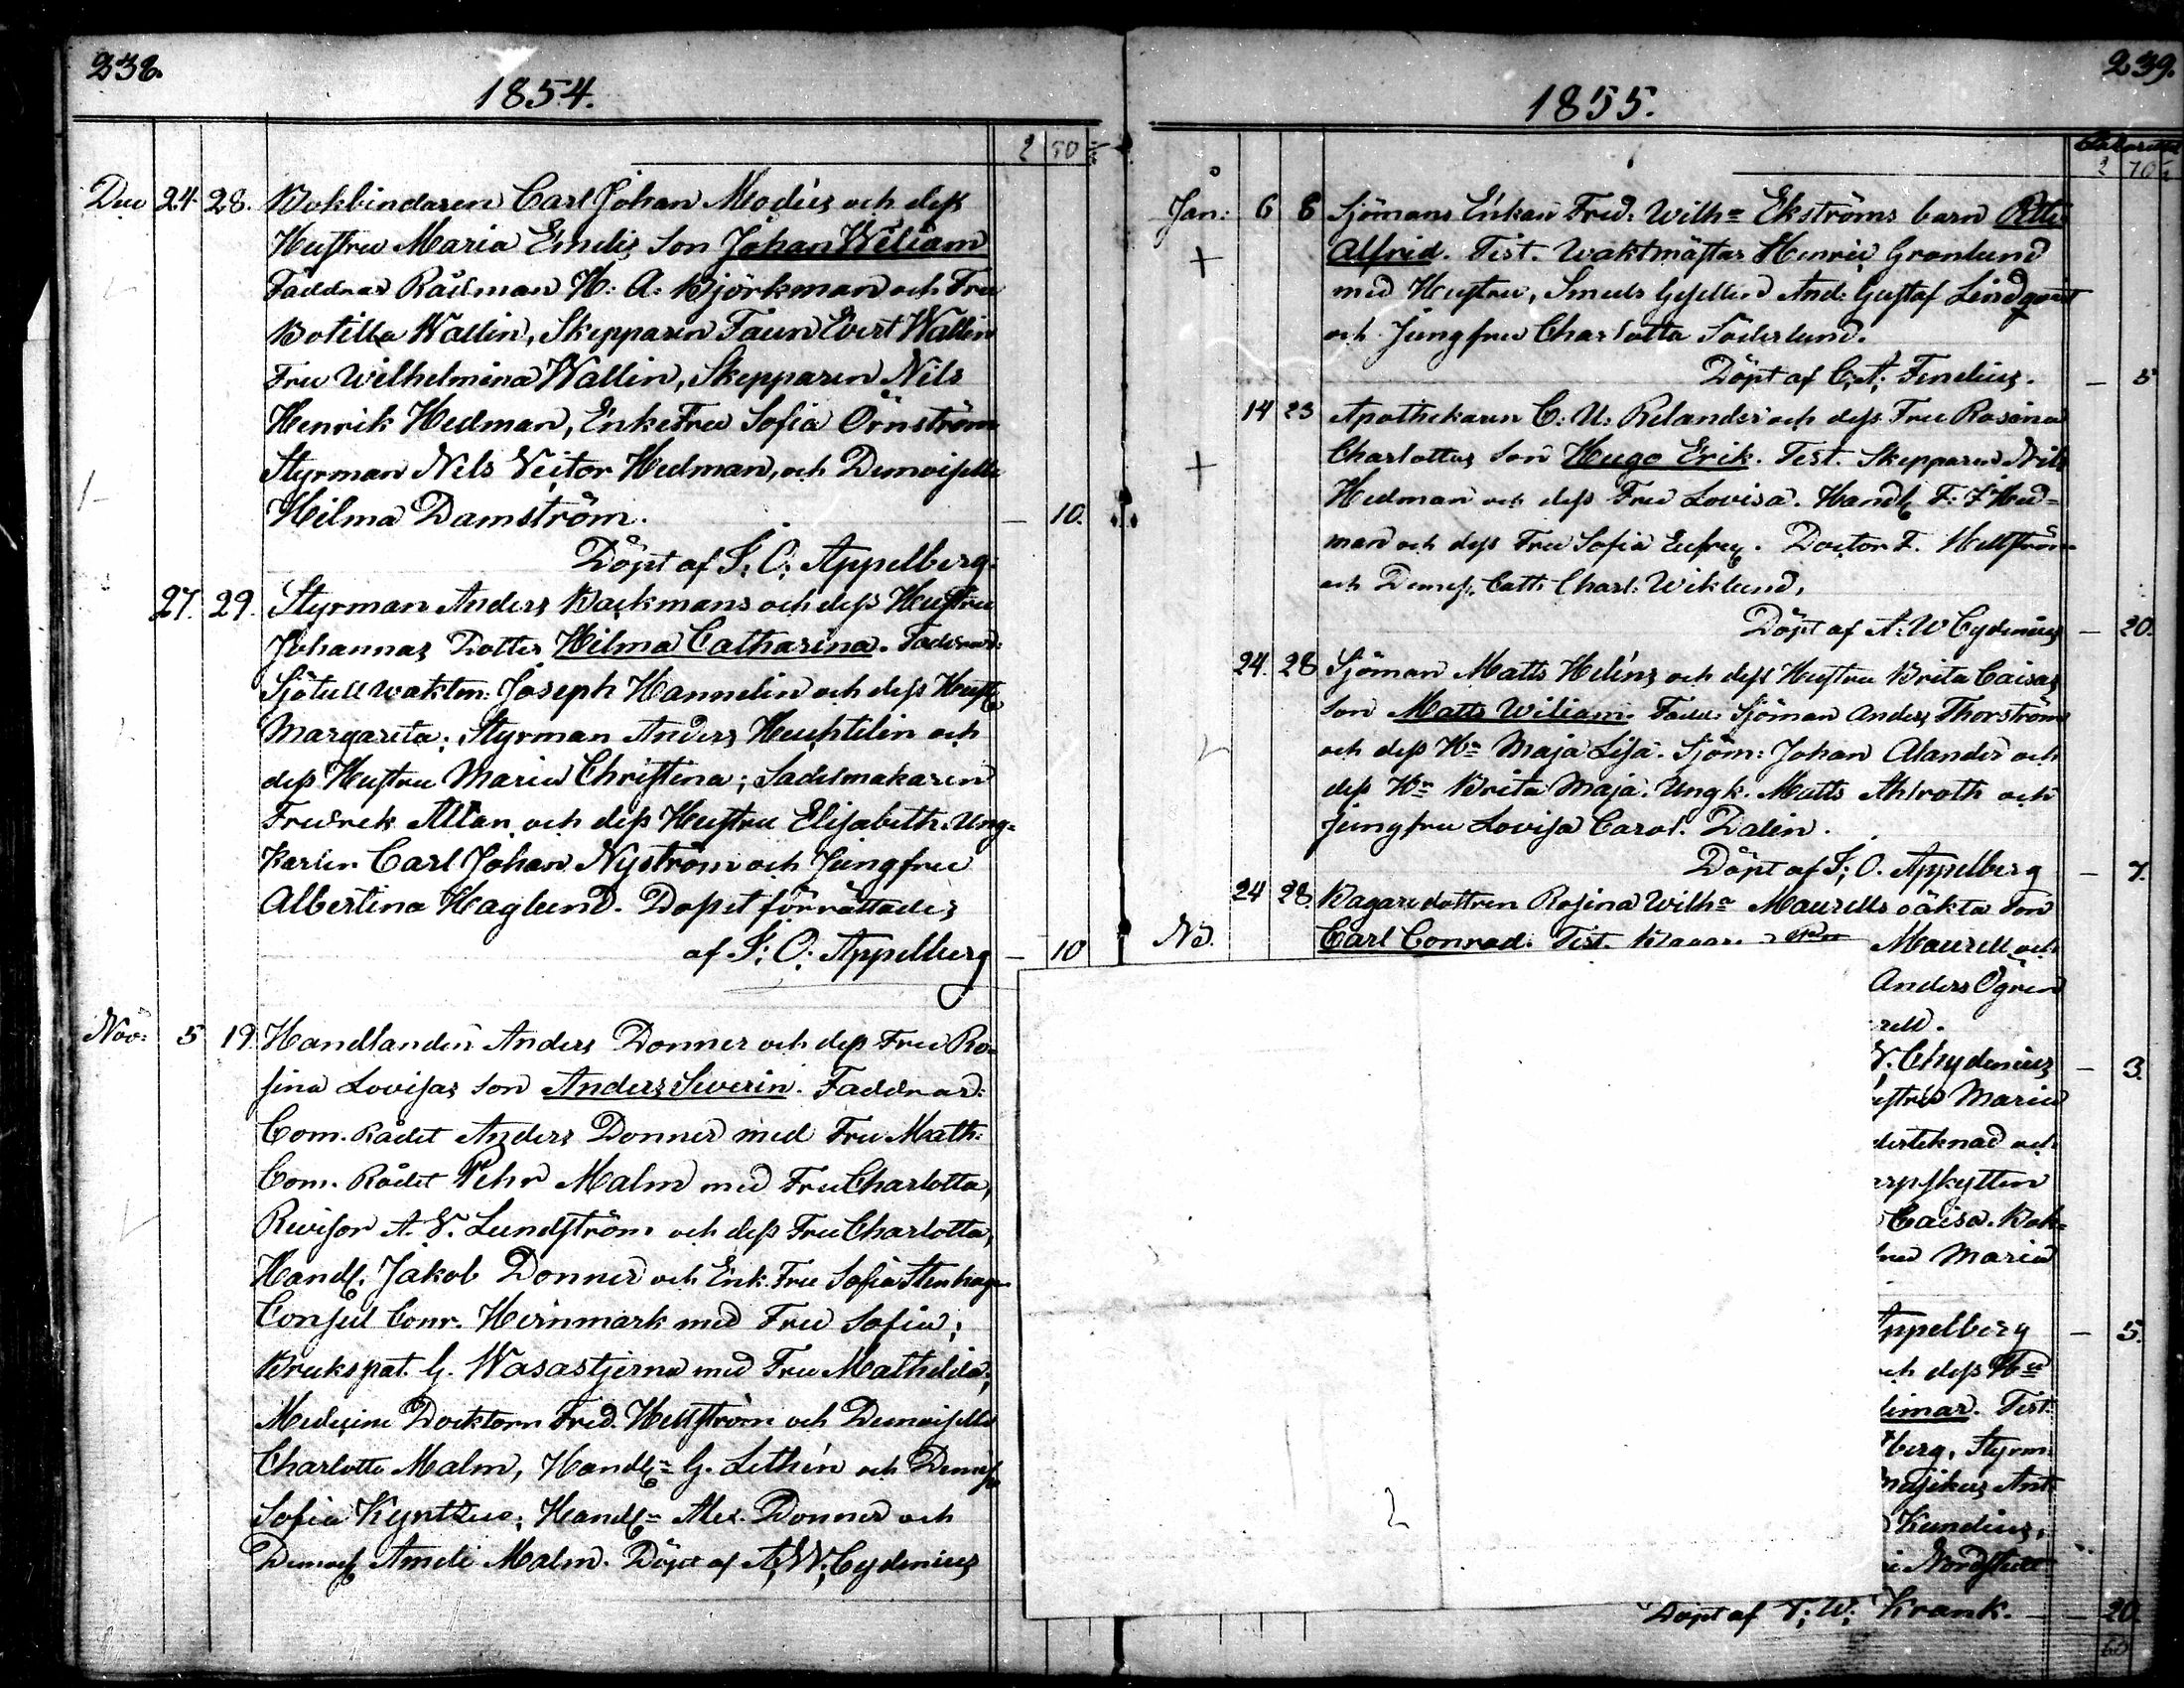 238.
1854.
2 50
Dec 24 28. Bokbindaren Carl Johan Modéus och dess
Hustru Maria Emelis Son Johan Wiliam
Faddrar Rådman H: A: Björkman och Fru
Botilla Wallin, Skepparen Evert Wallin
Fru Wilhelmina Wallin, Skepparen Nils
Henrik Hedman, EnkeFru Sofia Örnström
Styrman Nels Victor Hedman, och Demoiselle
Hilma Damström. — 10.
Döpt af J: O: Appelberg.
27. 29. Styrman Anders Backmans och dess Hustru
Johannas Dotter Hilma Catharina. Faddrar:
Sjötullwaktm: Joseph Hannelin och dess Hustr
Margareta; Styrman Anders Huchtelin och
dess Hustru Maria Christina; Sadelmakaren
Fredrek Allan och dess Hustru Elisabeth. Ung-
karlen Carl Johan Nyström och Jungfru
Albertina Haglund. Dopet förrättades
af J: O: Appelberg — 10
Nov: 5 19. Handlanden Anders Donner och dess Fru Ro-
sina Lovisas Son Anders Severin. Faddrar:
Com. Rådet Anders Donner med Fru Math:
Com. Rådet Pehr Malm med Fru Charlotta,
Revisor A. V. Lundström och dess Fru Charlotta,
Handl. Jakob Donner och Enk. Fru Sofia Stenhagen
Consul Conr. Hernmark med Fru Sofia;
Brukspat. G. Wasastjerna med Fru Mathilda;
Medicine Docktorn Fred. Hellström och Demoiselle
Charlotte Malm, Handl. G. Lethén och Demois
Sofia Kyntzell; Handl. Alex. Donner och
Demois Amelie Malm. Döpt af A. W. Cydenius
239.
1855.
2 70
Jan: 6 8 Sjömans Enkan Fred: Wilh:a Ekströms barn Petter
Alfrid. Test. Waktmästar Henric Gronlund
med Hustru, Smeds Gesellen And: Gustaf Lindqvist
och Jungfru Charlotta Söderlund.
Döpt af C. A. Fendius. — 5
14 23 Apothekaren C: U: Relander och dess Fru Rosina
Charlottas Son Hugo Erik. Test. Skepparen Nils
Hedman och dess Fru Lovisa. Handl. F: F Hed-
man och dess Fru Sofia. Doctor F. Hellström
och Demois. Cath: Charl: Wiklund.
Döpt af A: W Cydenius — 20.
24. 28 Sjöman Matts Heléns och dess Hustru Brita Caisas
Son Matts Wiliam. Fadd: Sjöman Anders Thorström
och dess H:u Maja Lisa. Sjöm: Johan Alander och
dess H:u Brita Maja. Ungk. Matts Ahlroth och
Jungfru Lovisa Carol. Dalin.
Döpt af J; O. Appelberg — 7.
24 28. Bagaredottren Rosina Wilh:a Maurells oäkta Son
No. Carl Conrad. Test. Maurell och
Anders Ögren
rell.
W; Chydenius — 3.
ustru Maria
derteknad och
arpskytten
Caisa. Bok-
fru Maria
Appelberg — 5.
och dess H:u
limar. Test.
berg, Styrm:
Musikus Ant
Kundius,
Nordstedt
Döpt af T; W; Krank. — 20